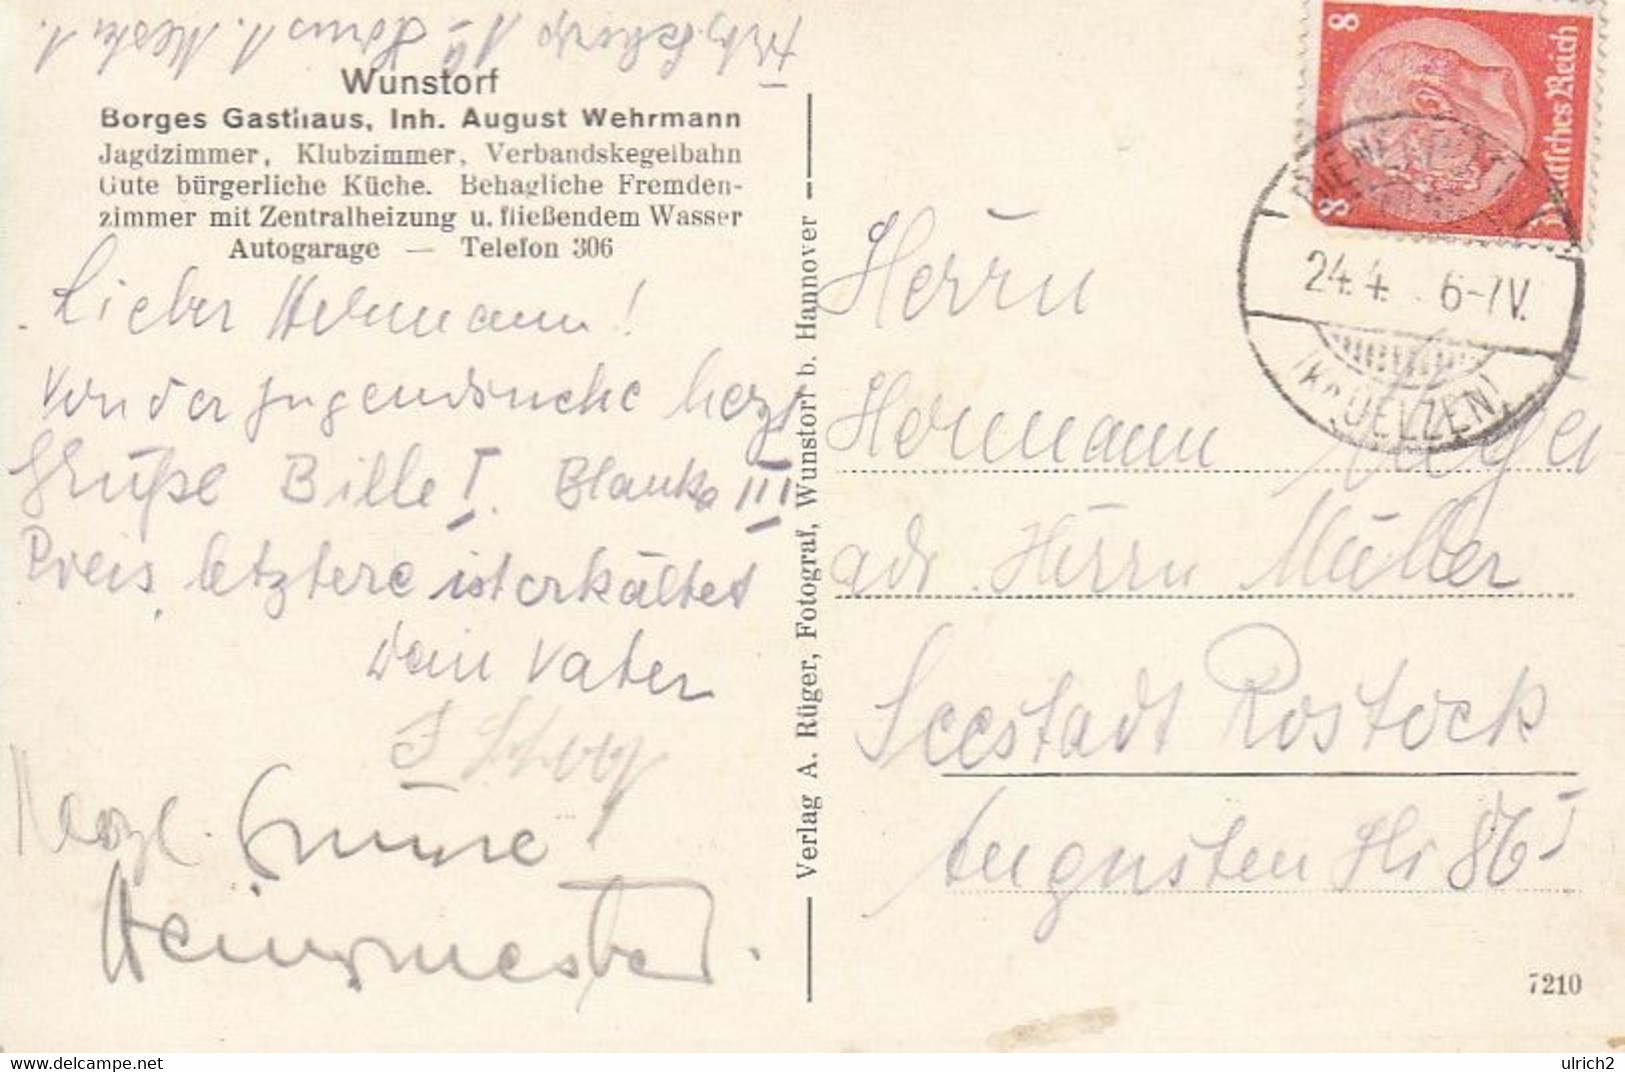 Wunstorf
Borges Gasthaus, Inh. August Wehrmann
Jagdzimmer, Klubzimmer, Verbandskegelbahn
Gute bürgerliche Küche. Behagliche Fremden-
zimmer mit Zentralheizung u. fließendem Wasser
Autogarage — Telefon 306
Lieber Hermann!
Von der Jugendsuche herzl
Grüße Bille I. Blanka III
Preis, letztere ist erkältet
Dein Vater
Herzl. Grüsse
Verlag A. Rüger, Fotograf, Wunstorf b. Hannover
8
8
Deutsches Reich
24.4. 6-7V.
UELZEN)
Herrn
Hermann
adr. Herrn Müller
Seestadt Rostock
Augusten Str 86 I
7210
https://www.delcampe.net
ulrich2